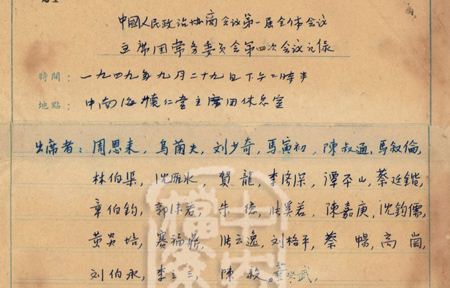 中國人民政治协商会议第一届全体会议
主席团常务委员会第四次会议记录
時間：一九四九年九月二十九日下午三時半
地點：中南海懷仁堂主席团休息室
出席者：周恩来，乌蘭夫，刘少奇，馬寅初，陳叔通，馬叙倫，
林伯渠，沈雁冰，賀龍，李濟深，譚平山，蔡廷鍇，
章伯钧，郭沫若，朱德，陳嘉庚，沈鈞儒，
黄炎培，賽福鼎，張云逸，刘格平，蔡暢，高崗，
刘伯承，李立三，陳毅，董必武，